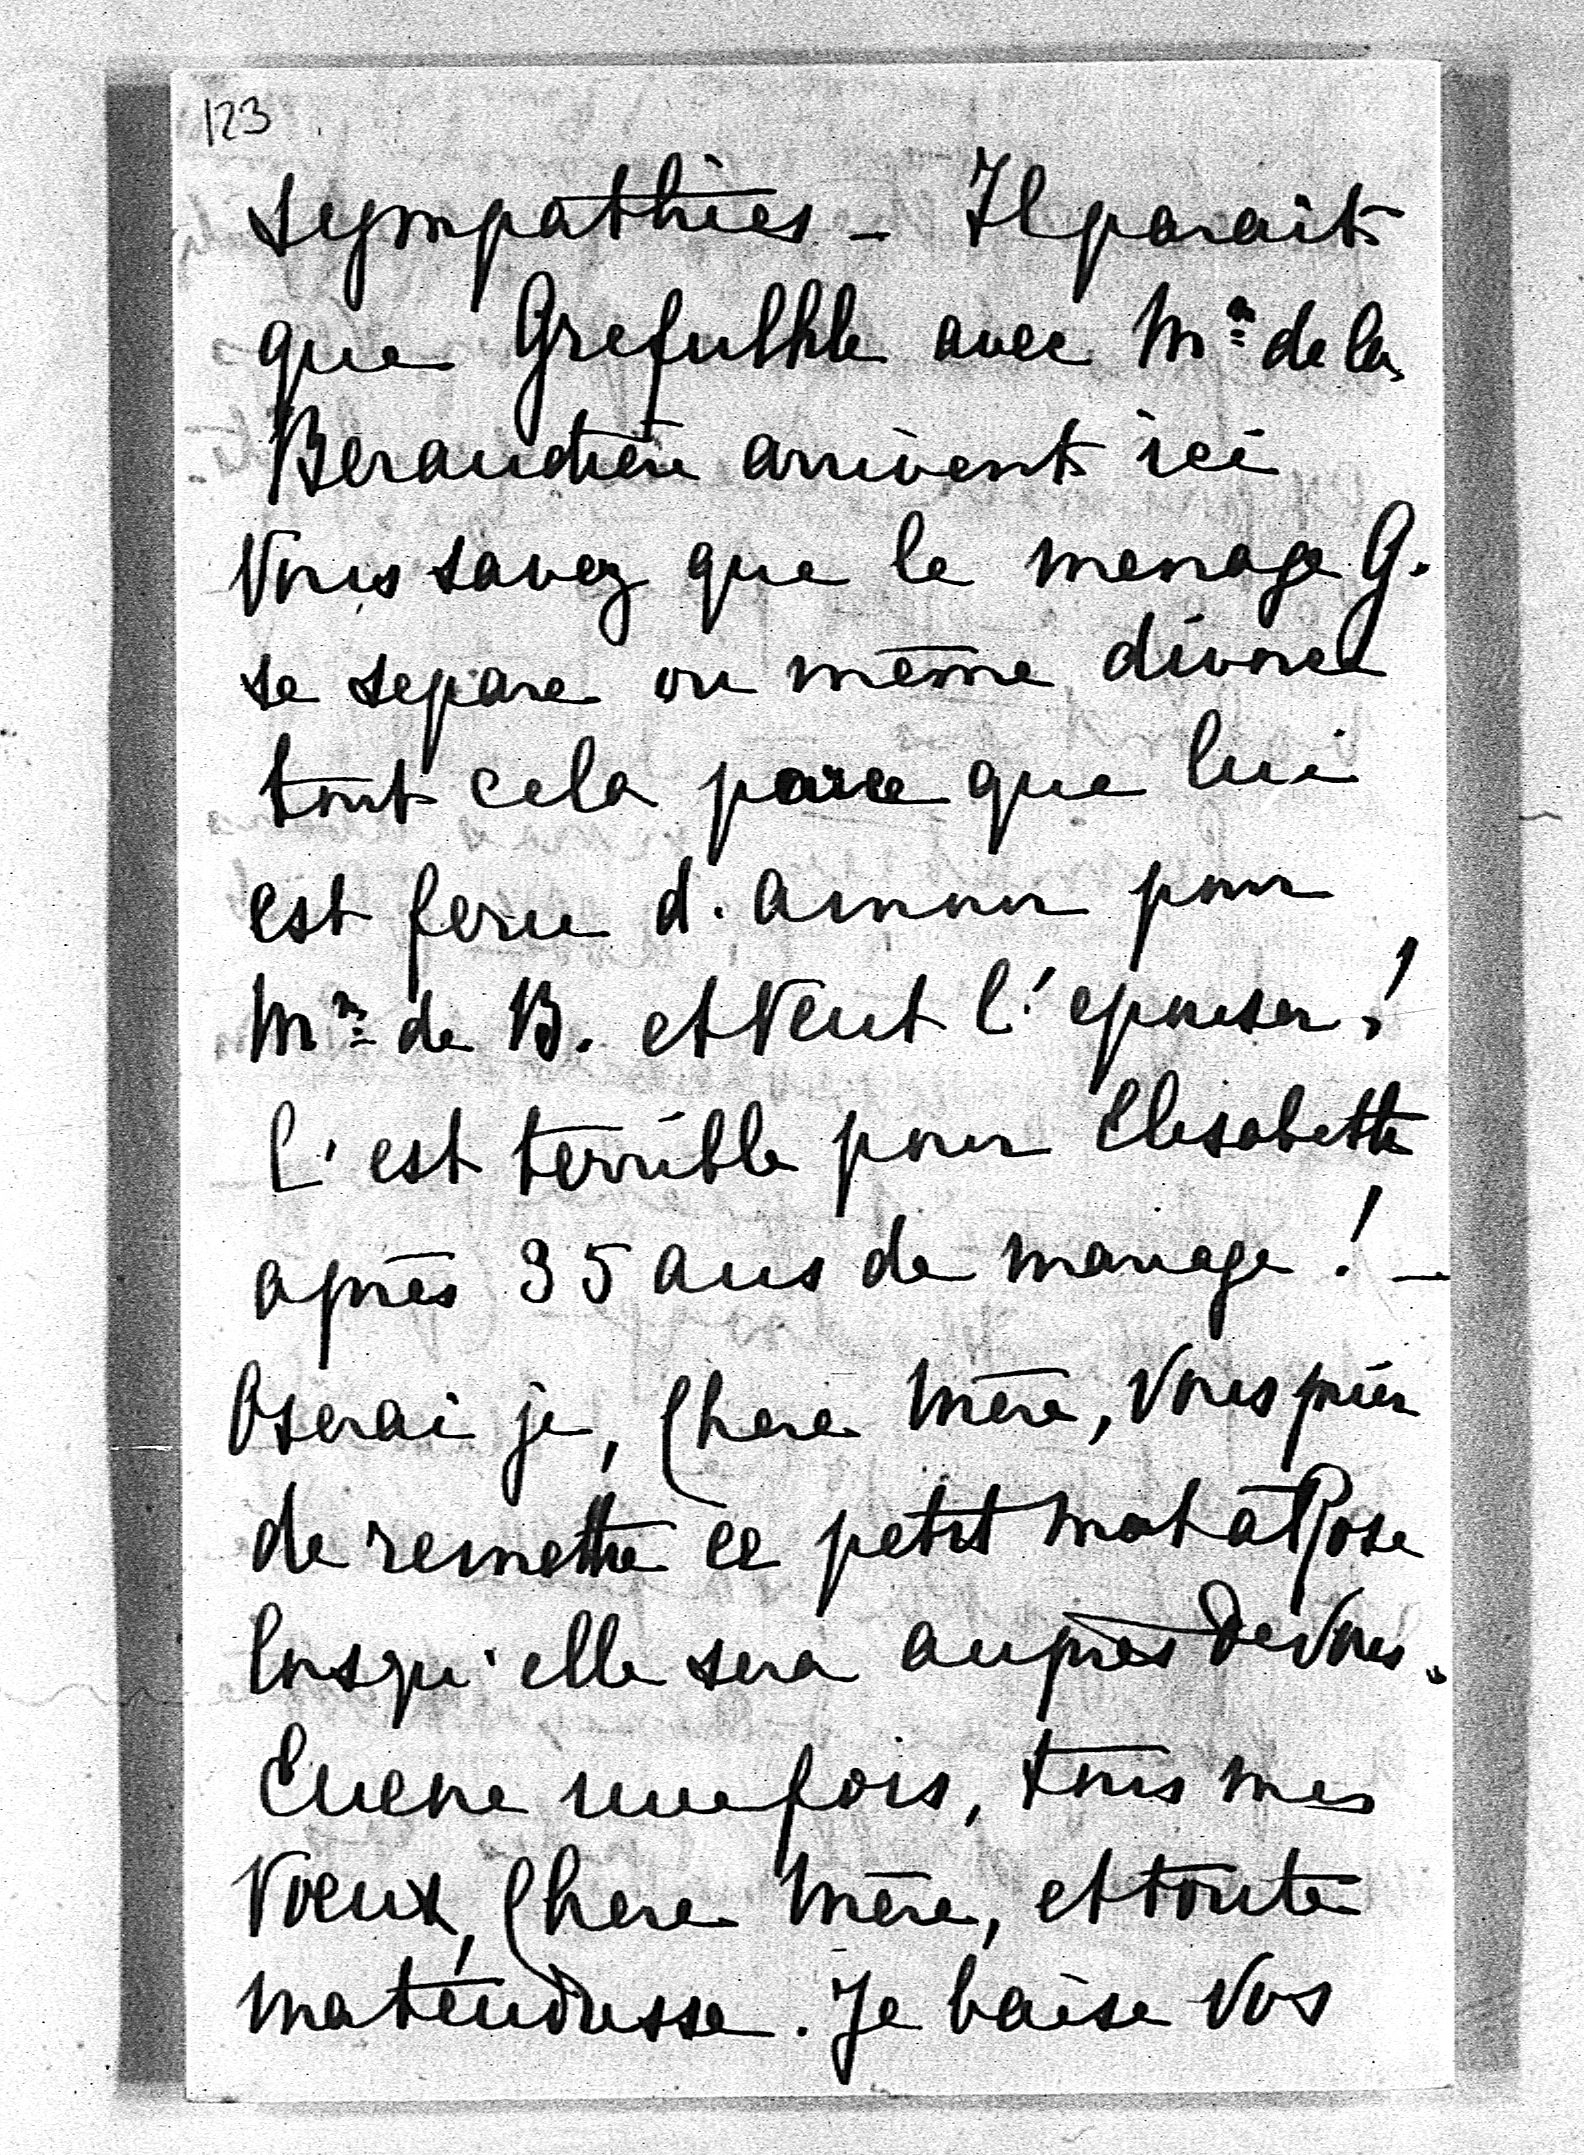 123
sympathies - Il parait
que Grefulhle avec Mme de la
Beraudière arrivent ici
Vous savez que le menage G.
se separe ou même divorce
tout cela parce que lui
est feru d'amour pour
Mme de B. et veut l'epouser!
C'est terrible pour Elisabeth
après 35 ans de mariage! -
Oserai je, Chere Mère, vous prier
de remettre ce petit mot à Rose
lorsqu'elle sera auprès de vous.
Encore une fois, tous mes
vœux, Chere Mère, et toute
ma tendresse. Je baise vos